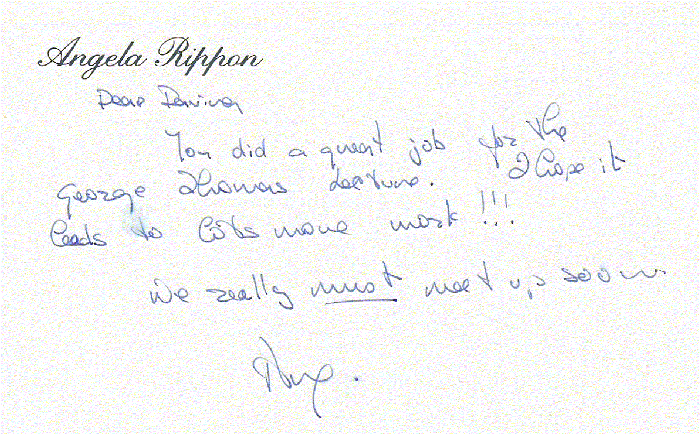 Angela Rippon
Dear Davina
You did a great job for the
George Thomas Lecture. I hope it
leads to lots more work!!!
We really must meet up soon.
Ange.